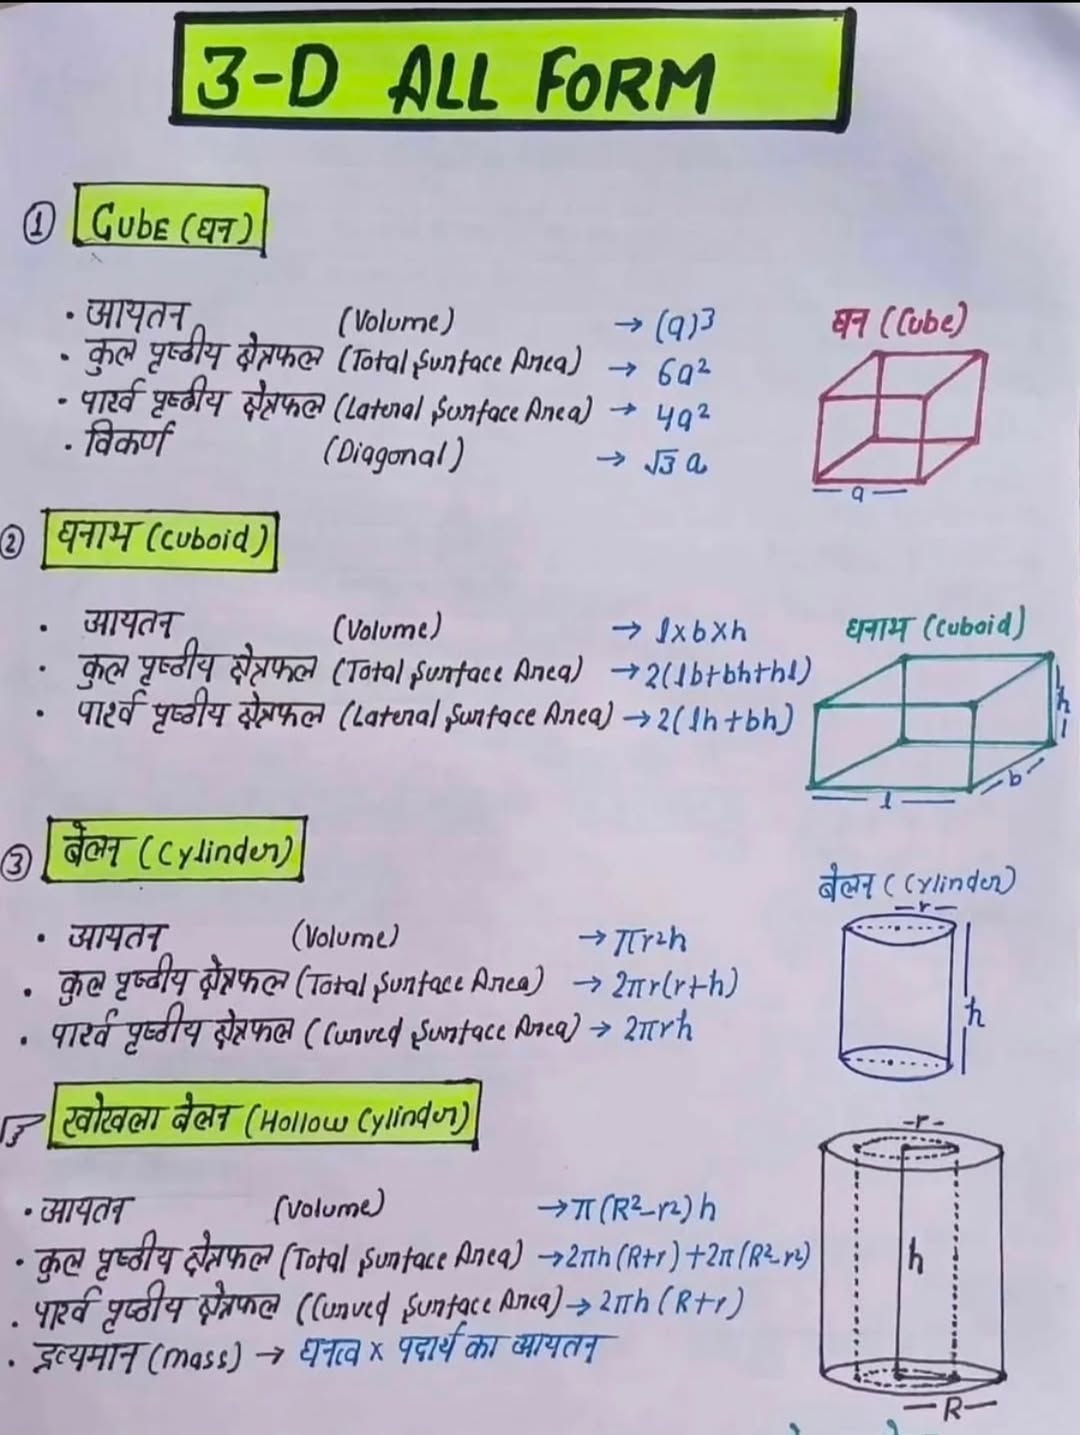 3-D ALL FORM
① CubE (घन)
• आयतन (Volume) → (a)³
• कुल पृष्ठीय क्षेत्रफल (Total Surface Area) → 6a²
• पार्श्व पृष्ठीय क्षेत्रफल (Lateral Surface Area) → 4a²
• विकर्ण (Diagonal) → √3 a
घन (Cube)
a
② घनाभ (Cuboid)
• आयतन (Volume) → l×b×h
• कुल पृष्ठीय क्षेत्रफल (Total Surface Area) → 2(lb+bh+hl)
• पार्श्व पृष्ठीय क्षेत्रफल (Lateral Surface Area) → 2(lh+bh)
घनाभ (Cuboid)
h
b
l
③ बेलन (Cylinder)
• आयतन (Volume) → πr²h
• कुल पृष्ठीय क्षेत्रफल (Total Surface Area) → 2πr(r+h)
• पार्श्व पृष्ठीय क्षेत्रफल (Curved Surface Area) → 2πrh
बेलन (Cylinder)
r
h
खोखला बेलन (Hollow Cylinder)
• आयतन (Volume) → π(R²-r²)h
• कुल पृष्ठीय क्षेत्रफल (Total Surface Area) → 2πh(R+r)+2π(R²-r²)
• पार्श्व पृष्ठीय क्षेत्रफल (Curved Surface Area) → 2πh(R+r)
• द्रव्यमान (mass) → घनत्व × पदार्थ का आयतन
r
h
R